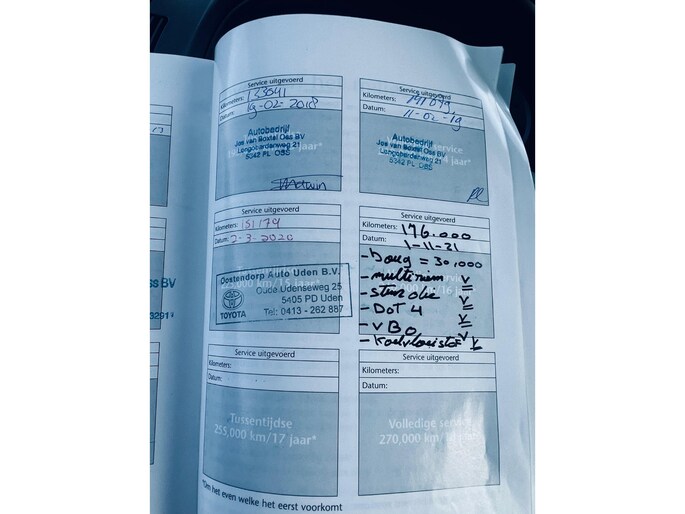 Service uitgevoerd
Kilometers: 123041
Datum: 19-02-2018
Autobedrijf
Jos van Boxtel Oss BV
Langobardenweg 21
5342 PL OSS
jaar*
Service uitgevoerd
Kilometers: 141079
Datum: 11-02-19
Autobedrijf
Jos van Boxtel Oss BV
Langobardenweg 21
5342 PL OSS
service
jaar*
Service uitgevoerd
Kilometers: 151174
Datum: 2-3-2020
km/15 jaar*
Oostendorp Auto Uden B.V.
Oude Udenseweg 25
5405 PD Uden
TOYOTA
Tel: 0413 - 262 887
Kilometers: 176.000
Datum: 1-11-21
- boug = 30,000
- multiriem v
- stuurolie v
- DOT 4 v
- v Bo v
- Koelvloeistof v
ss BV
3291
Service uitgevoerd
Kilometers:
Datum:
Tussentijdse
255,000 km/17 jaar*
Service uitgevoerd
Kilometers:
Datum:
Volledige
270,000 km/
*Om het even welke het eerst voorkomt